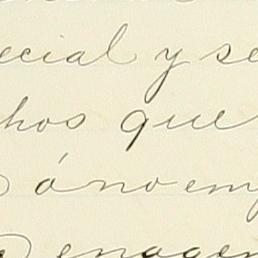 ecial y se
hos que
ó no em
enagen